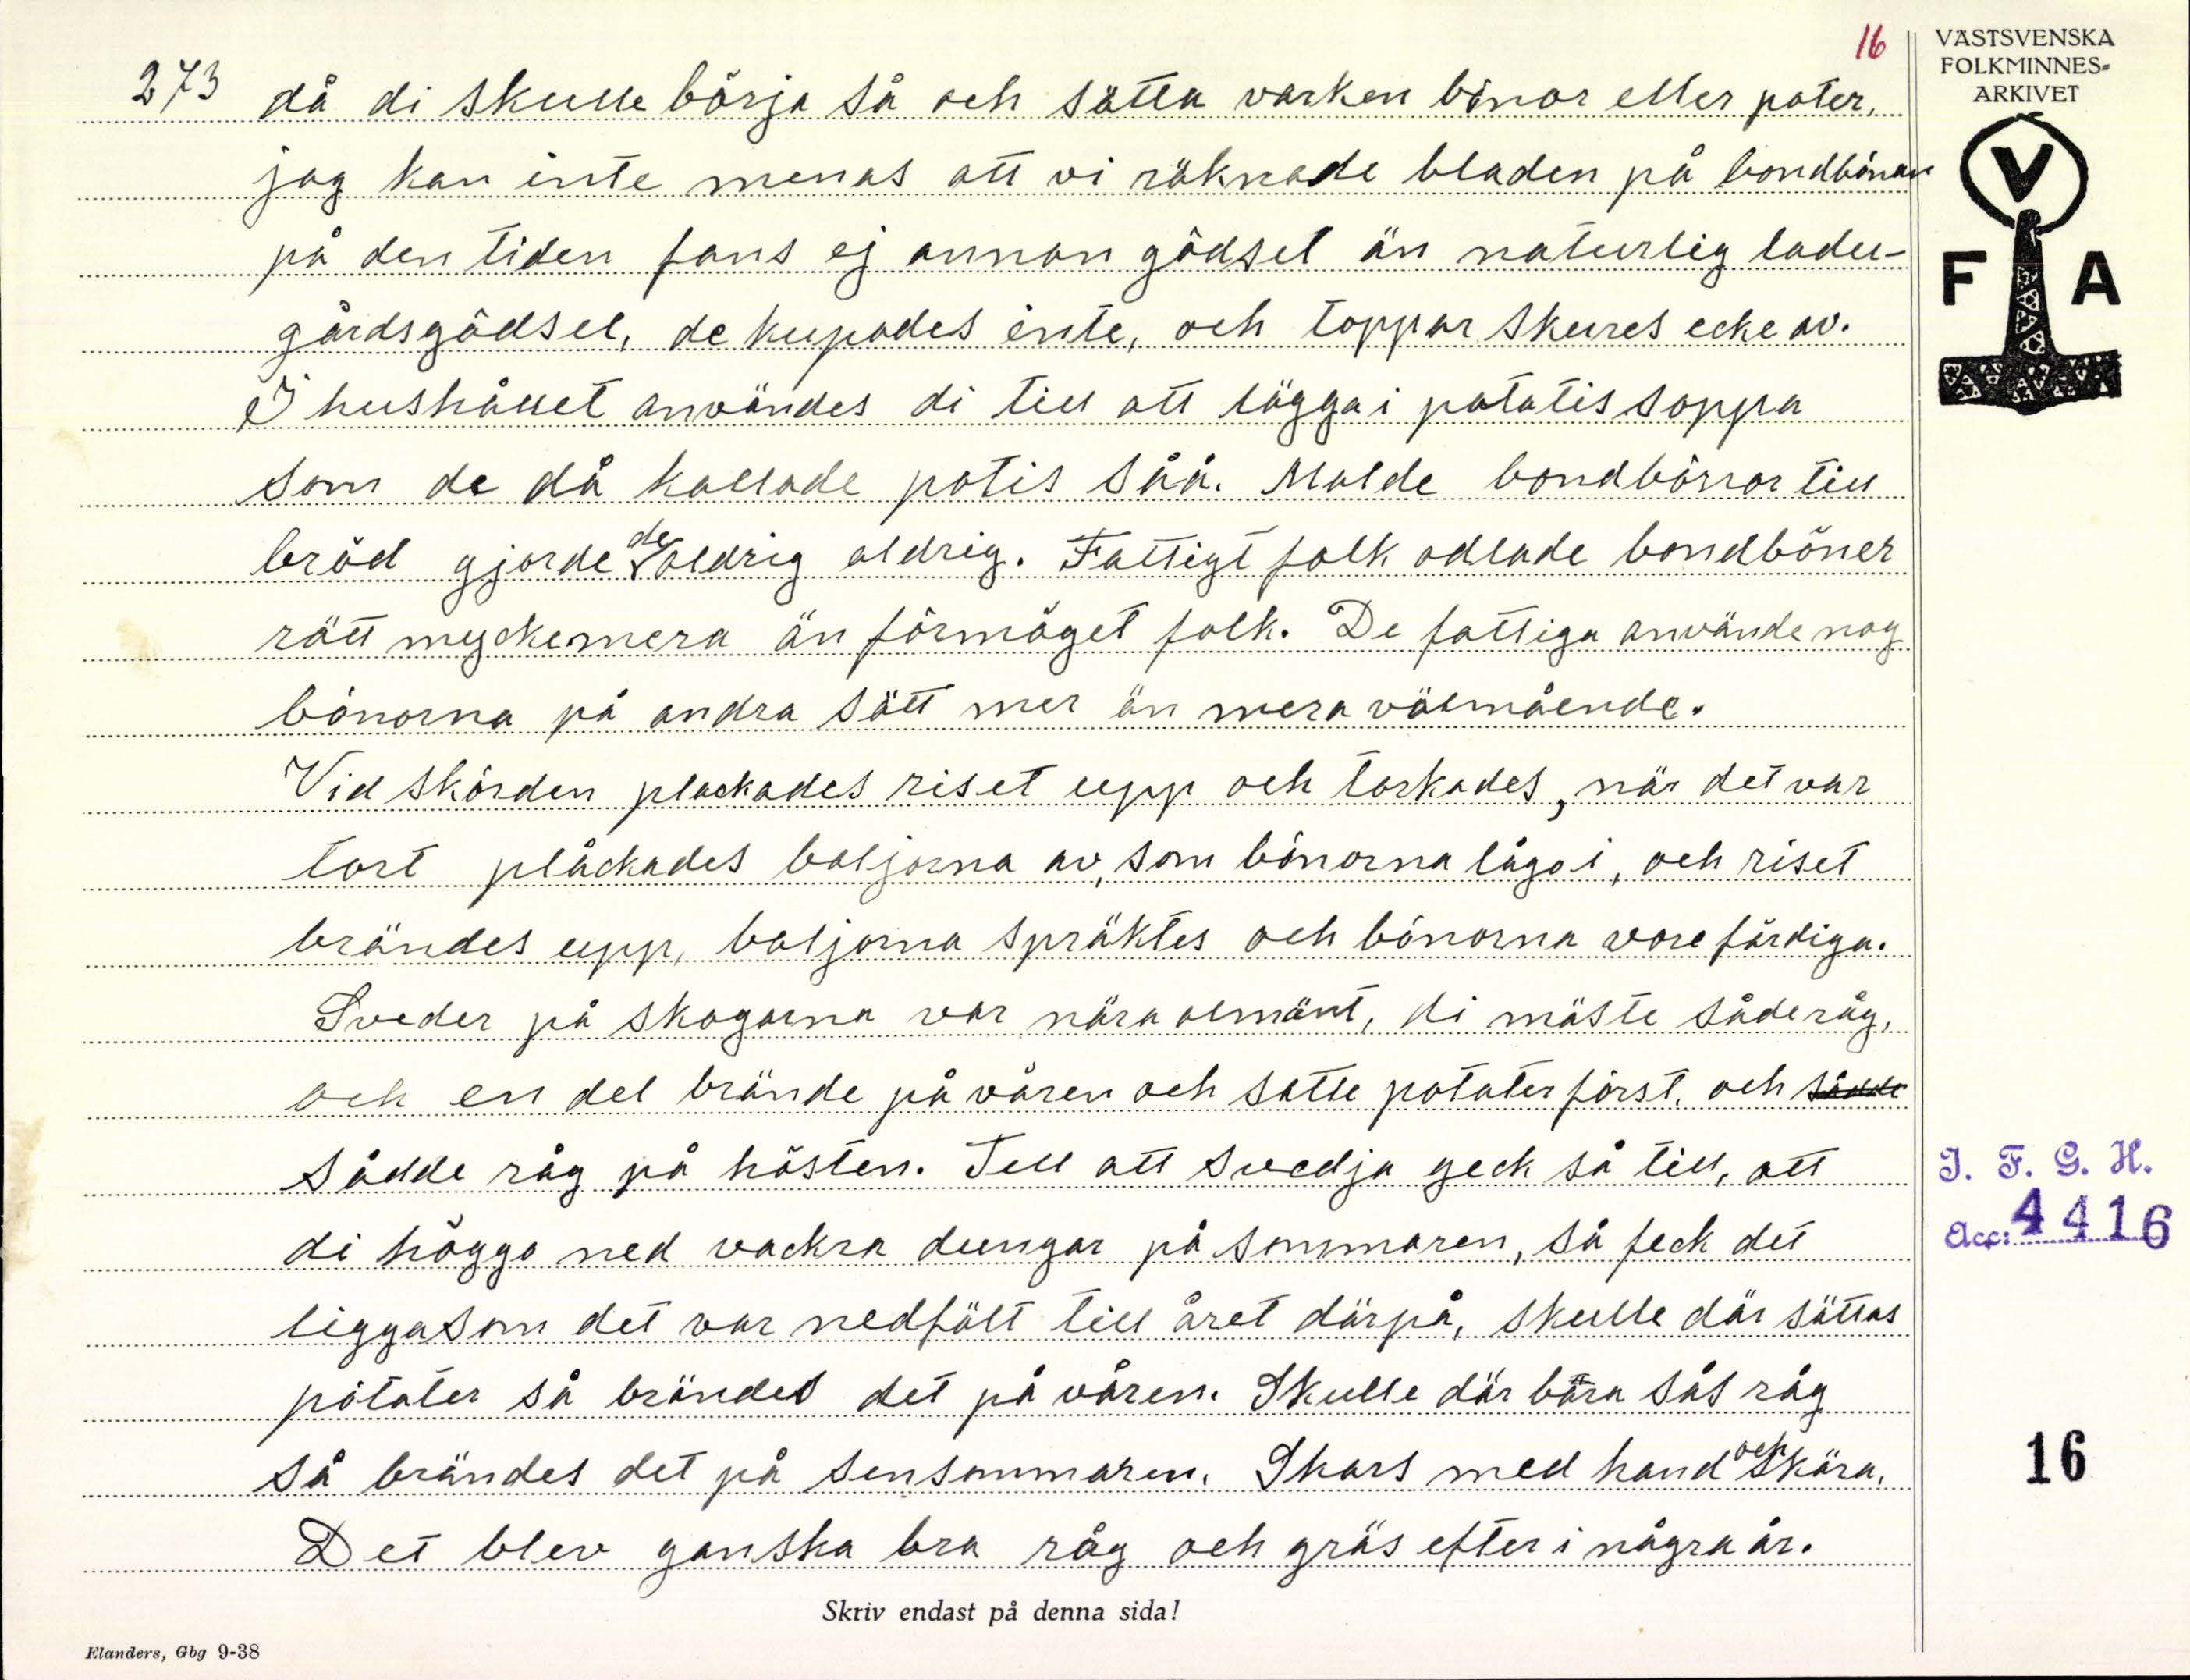 16
VÄSTSVENSKA
FOLKMINNES-
ARKIVET
V
F A
273 då di skulle börja så och sätta varken bönor eller poter,
jag kan inte menas att vi räknade bladen på bondbönan
på den tiden fans ej annan gödsel än naturlig ladu-
gårdsgödsel, de kupades inte, och toppar skures ecke av.
I hushållet användes di till att lägga i potatis soppa
som de då kallade potis såå. Malde bondbönor till
bröd gjorde de aldrig aldrig. Fattigt folk odlade bondböner
rätt myckemera än förmöget folk. De fattiga använde nog
bönorna på andra sätt mer än mera välmående.
Vid skörden plockades riset upp och torkades, när det var
tort plåckades baljorna av, som bönorna lågo i, och riset
brändes upp, baljorna spräktes och bönorna vore färdiga.
Sveder på skogarna var nära almänt, di måste så de råg,
och en del brände på våren och satte potater först, och sådde
sådde råg på hösten. Till att svedja geck så till, att
di höggo ned vackra dungar på sommaren, så feck det
ligga som det var nedfält till året därpå, skulle där sättas
pötater så brändes det på våren. Skulle där bara sås råg
så brändes det på sensommaren. Skars med hand och skära.
Det blev ganska bra råg och gräs efter i några år.
J. F. G. H.
Acc: 4416
16
Skriv endast på denna sida!
Elanders, Gbg 9-38